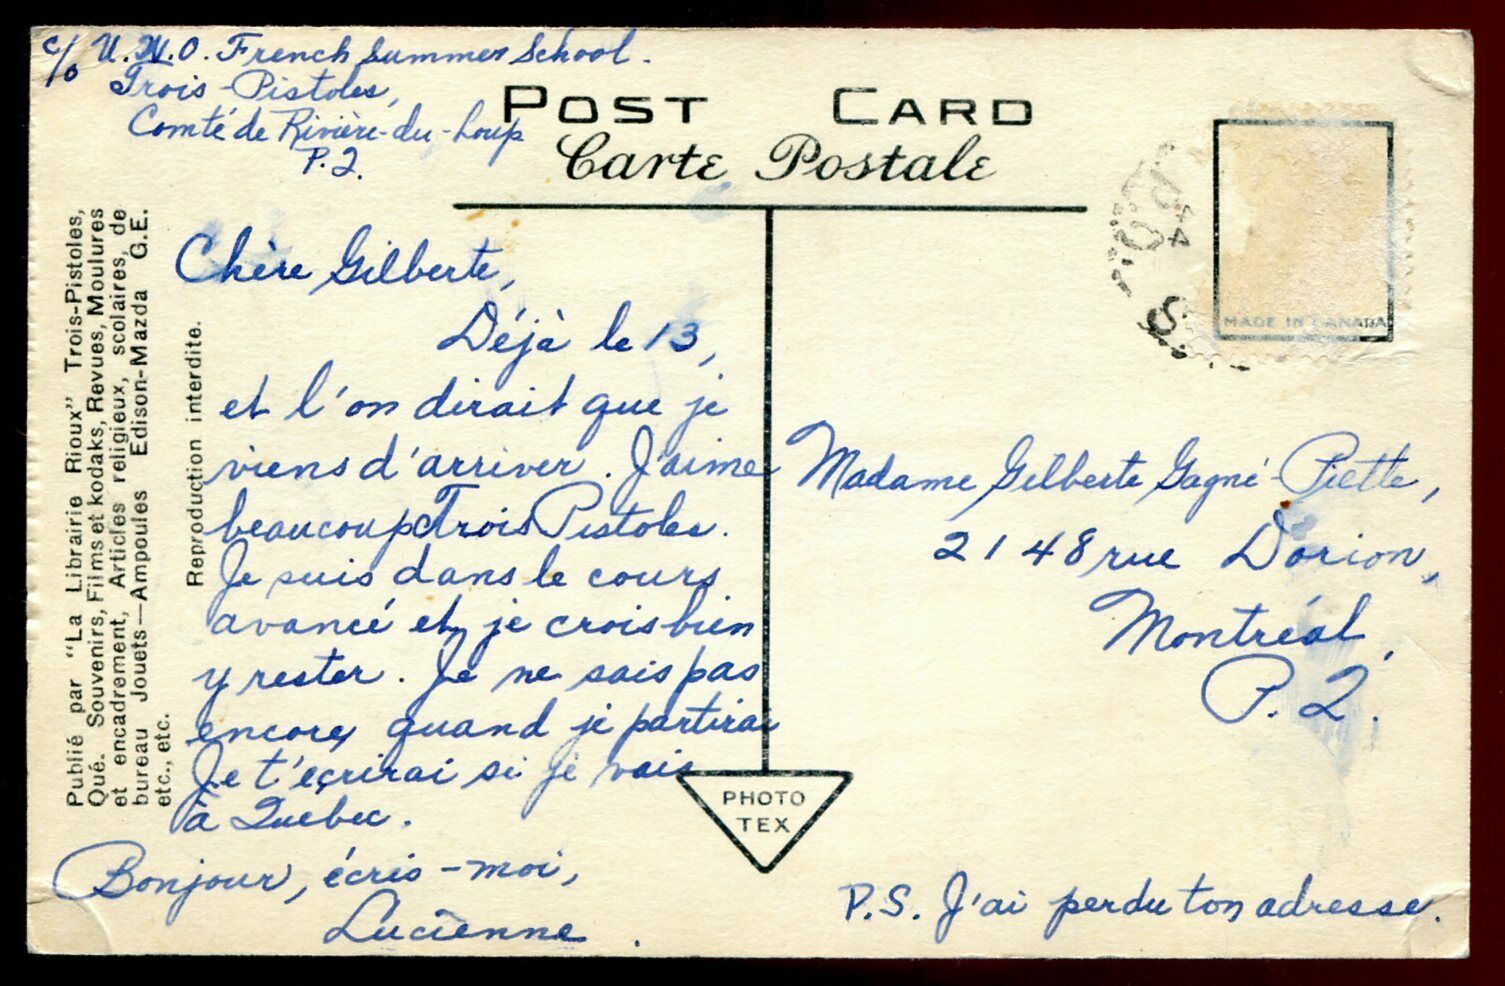 c/o U.W.O. French Summer School.
Trois-Pistoles,
Comté de Rivière-du-Loup
P.Q.
POST CARD
Carte Postale
Publié par "La Librairie Rioux" Trois-Pistoles,
Qué. Souvenirs, Films et kodaks, Revues, Moulures
et encadrement, Articles religieux, scolaires, de
bureau Jouets—Ampoules Edison-Mazda G.E.
etc., etc.
Reproduction interdite.
Chère Gilberte,
Déjà le 13,
et l'on dirait que je
viens d'arriver. J'aime
beaucoup Trois Pistoles.
Je suis dans le cours
avancé et je crois bien
y rester. Je ne sais pas
encore quand je partirai
Je t'eçrirai si je vais
à Quebec.
Bonjour, écris-moi,
Lucienne.
PHOTO
TEX
44
MADE IN CANADA
Madame Gilberte Gagné-Piette,
2148 rue Dorion,
Montréal,
P.Q.
P.S. J'ai perdu ton adresse.